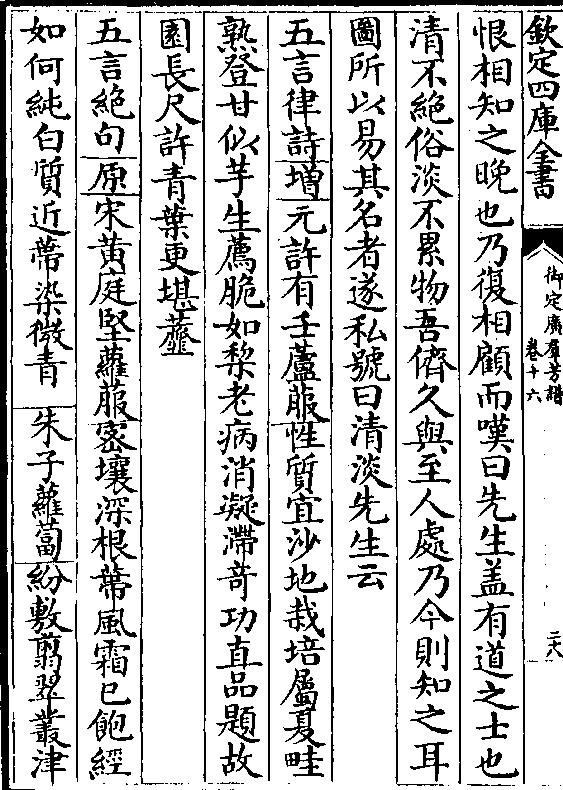 欽定四庫全書
御定廣羣芳譜
卷十六
二大
恨相知之晚也乃復相顧而嘆曰先生盖有道之士也
清不絕俗淡不累物吾儕久與至人處乃今則知之耳
圖所以易其名者遂私號曰清淡先生云
五言律詩增元許有壬蘆菔性質宜沙地栽培屬夏畦
熟登甘似芋生薦脆如棃老病消凝滯竒功直品題故
園長尺許青葉更堪虀
五言絕句原宋黃庭堅蘿菔密壤深根蒂風霜已飽經
如何純白質近蒂染微青 朱子蘿蔔紛敷翦翠叢津